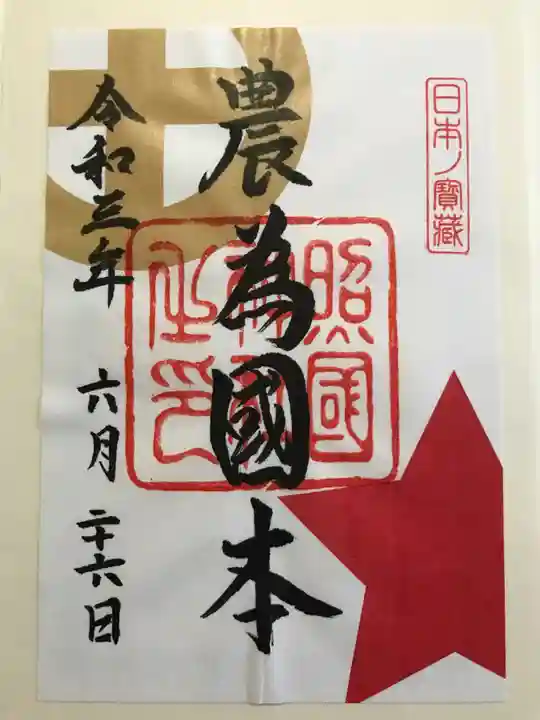 日本ノ寶藏
農為國本
照國
神社
之印
令和三年 六月 二十六日